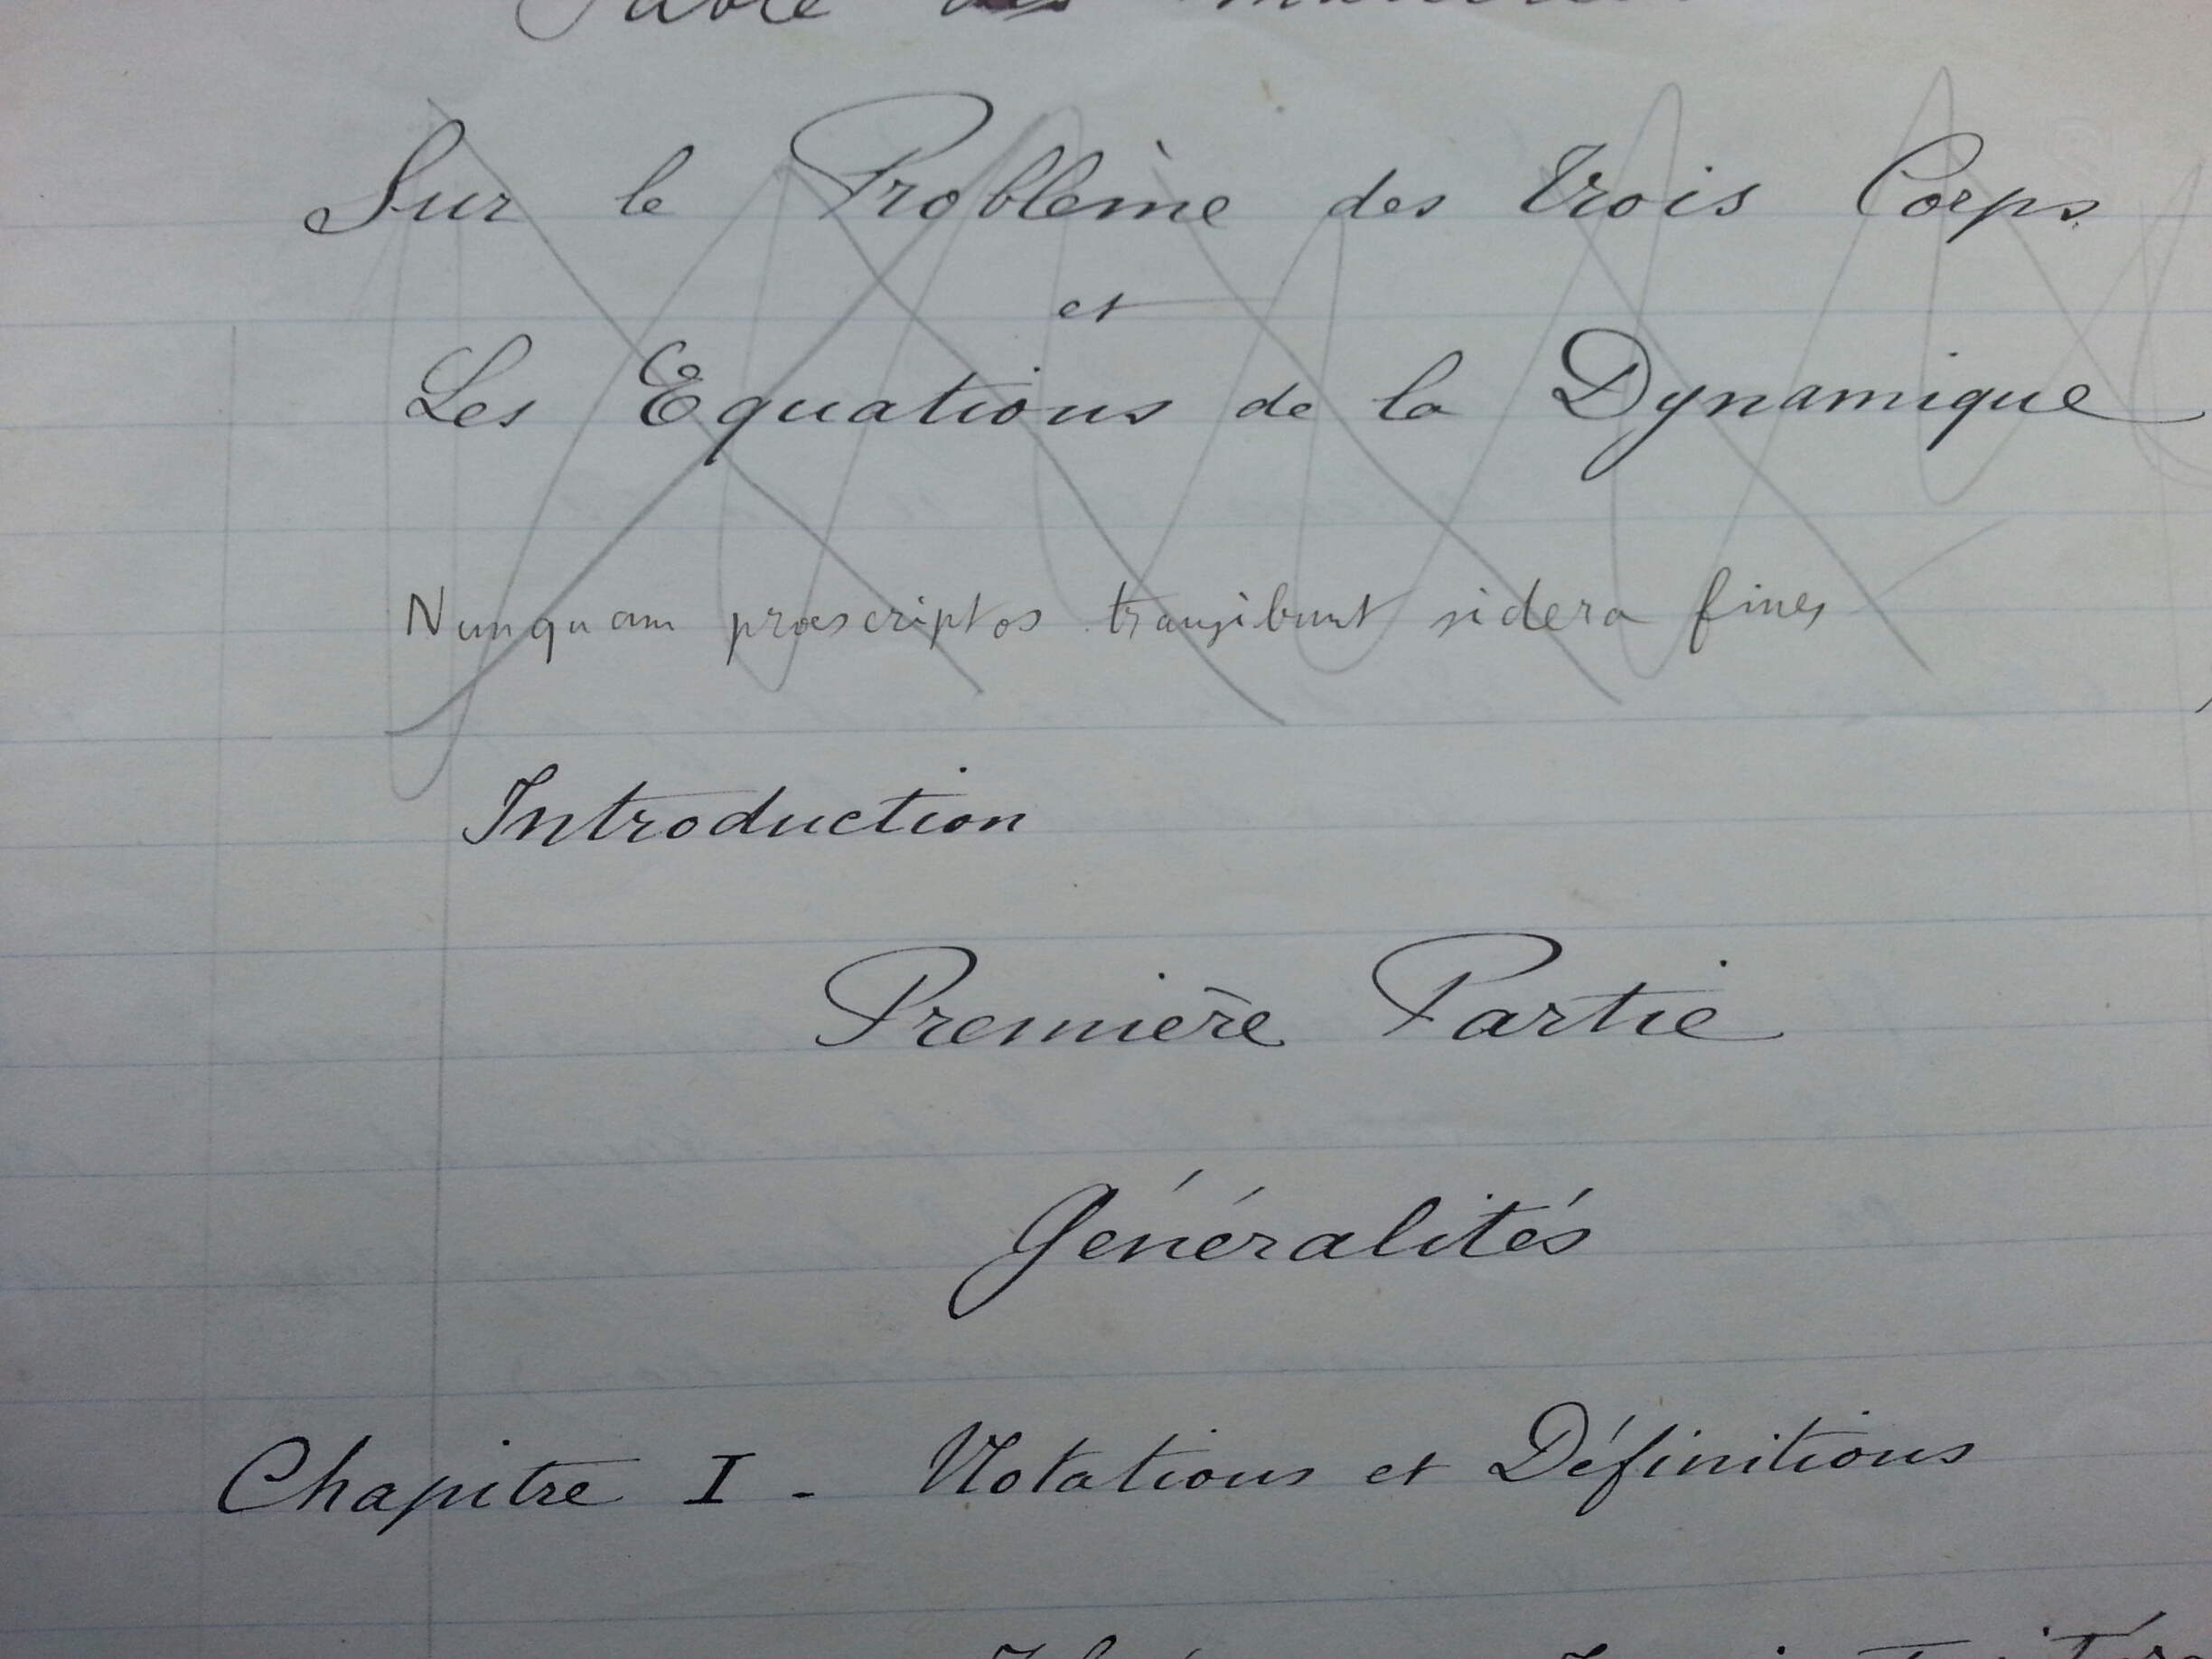 Table des matières
Sur le Problème des trois Corps
et
Les Equations de la Dynamique
Nunquam præscriptos transibunt sidera fines
Introduction
Première Partie
Généralités
Chapitre I - Notations et Définitions